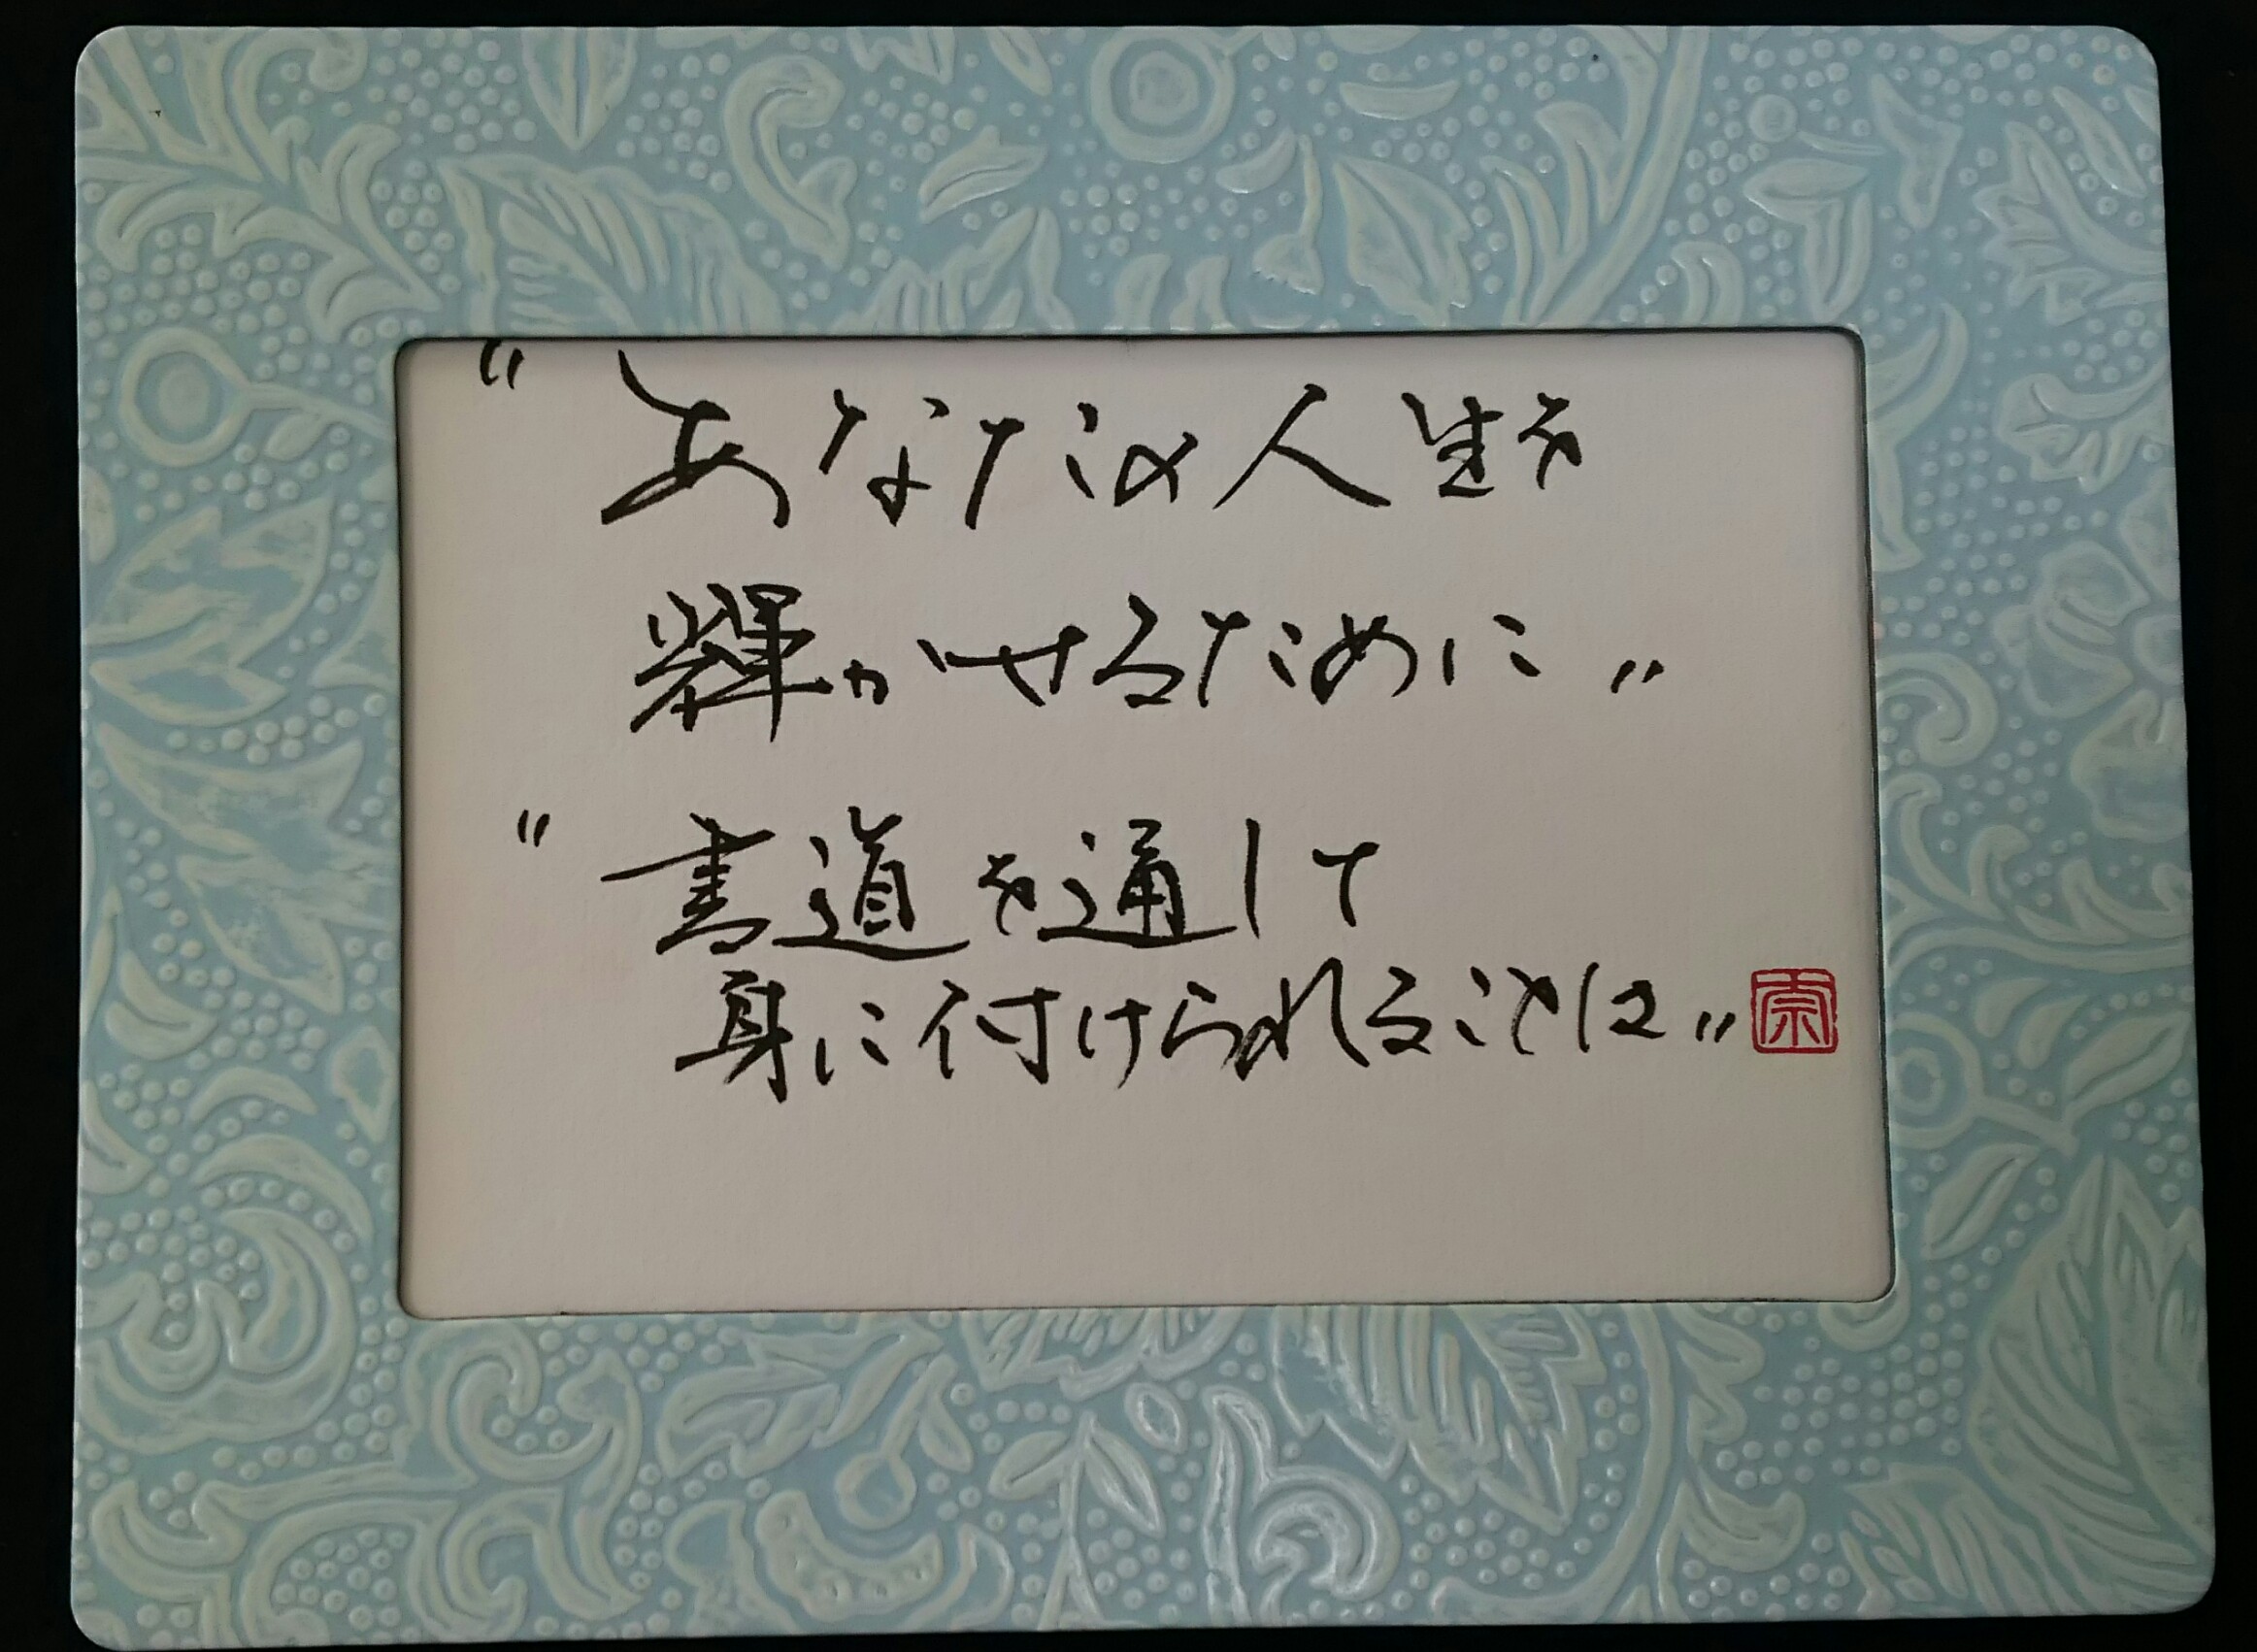 "あなたの人生を
輝かせるために"
"書道を通して
身に付けられることは"